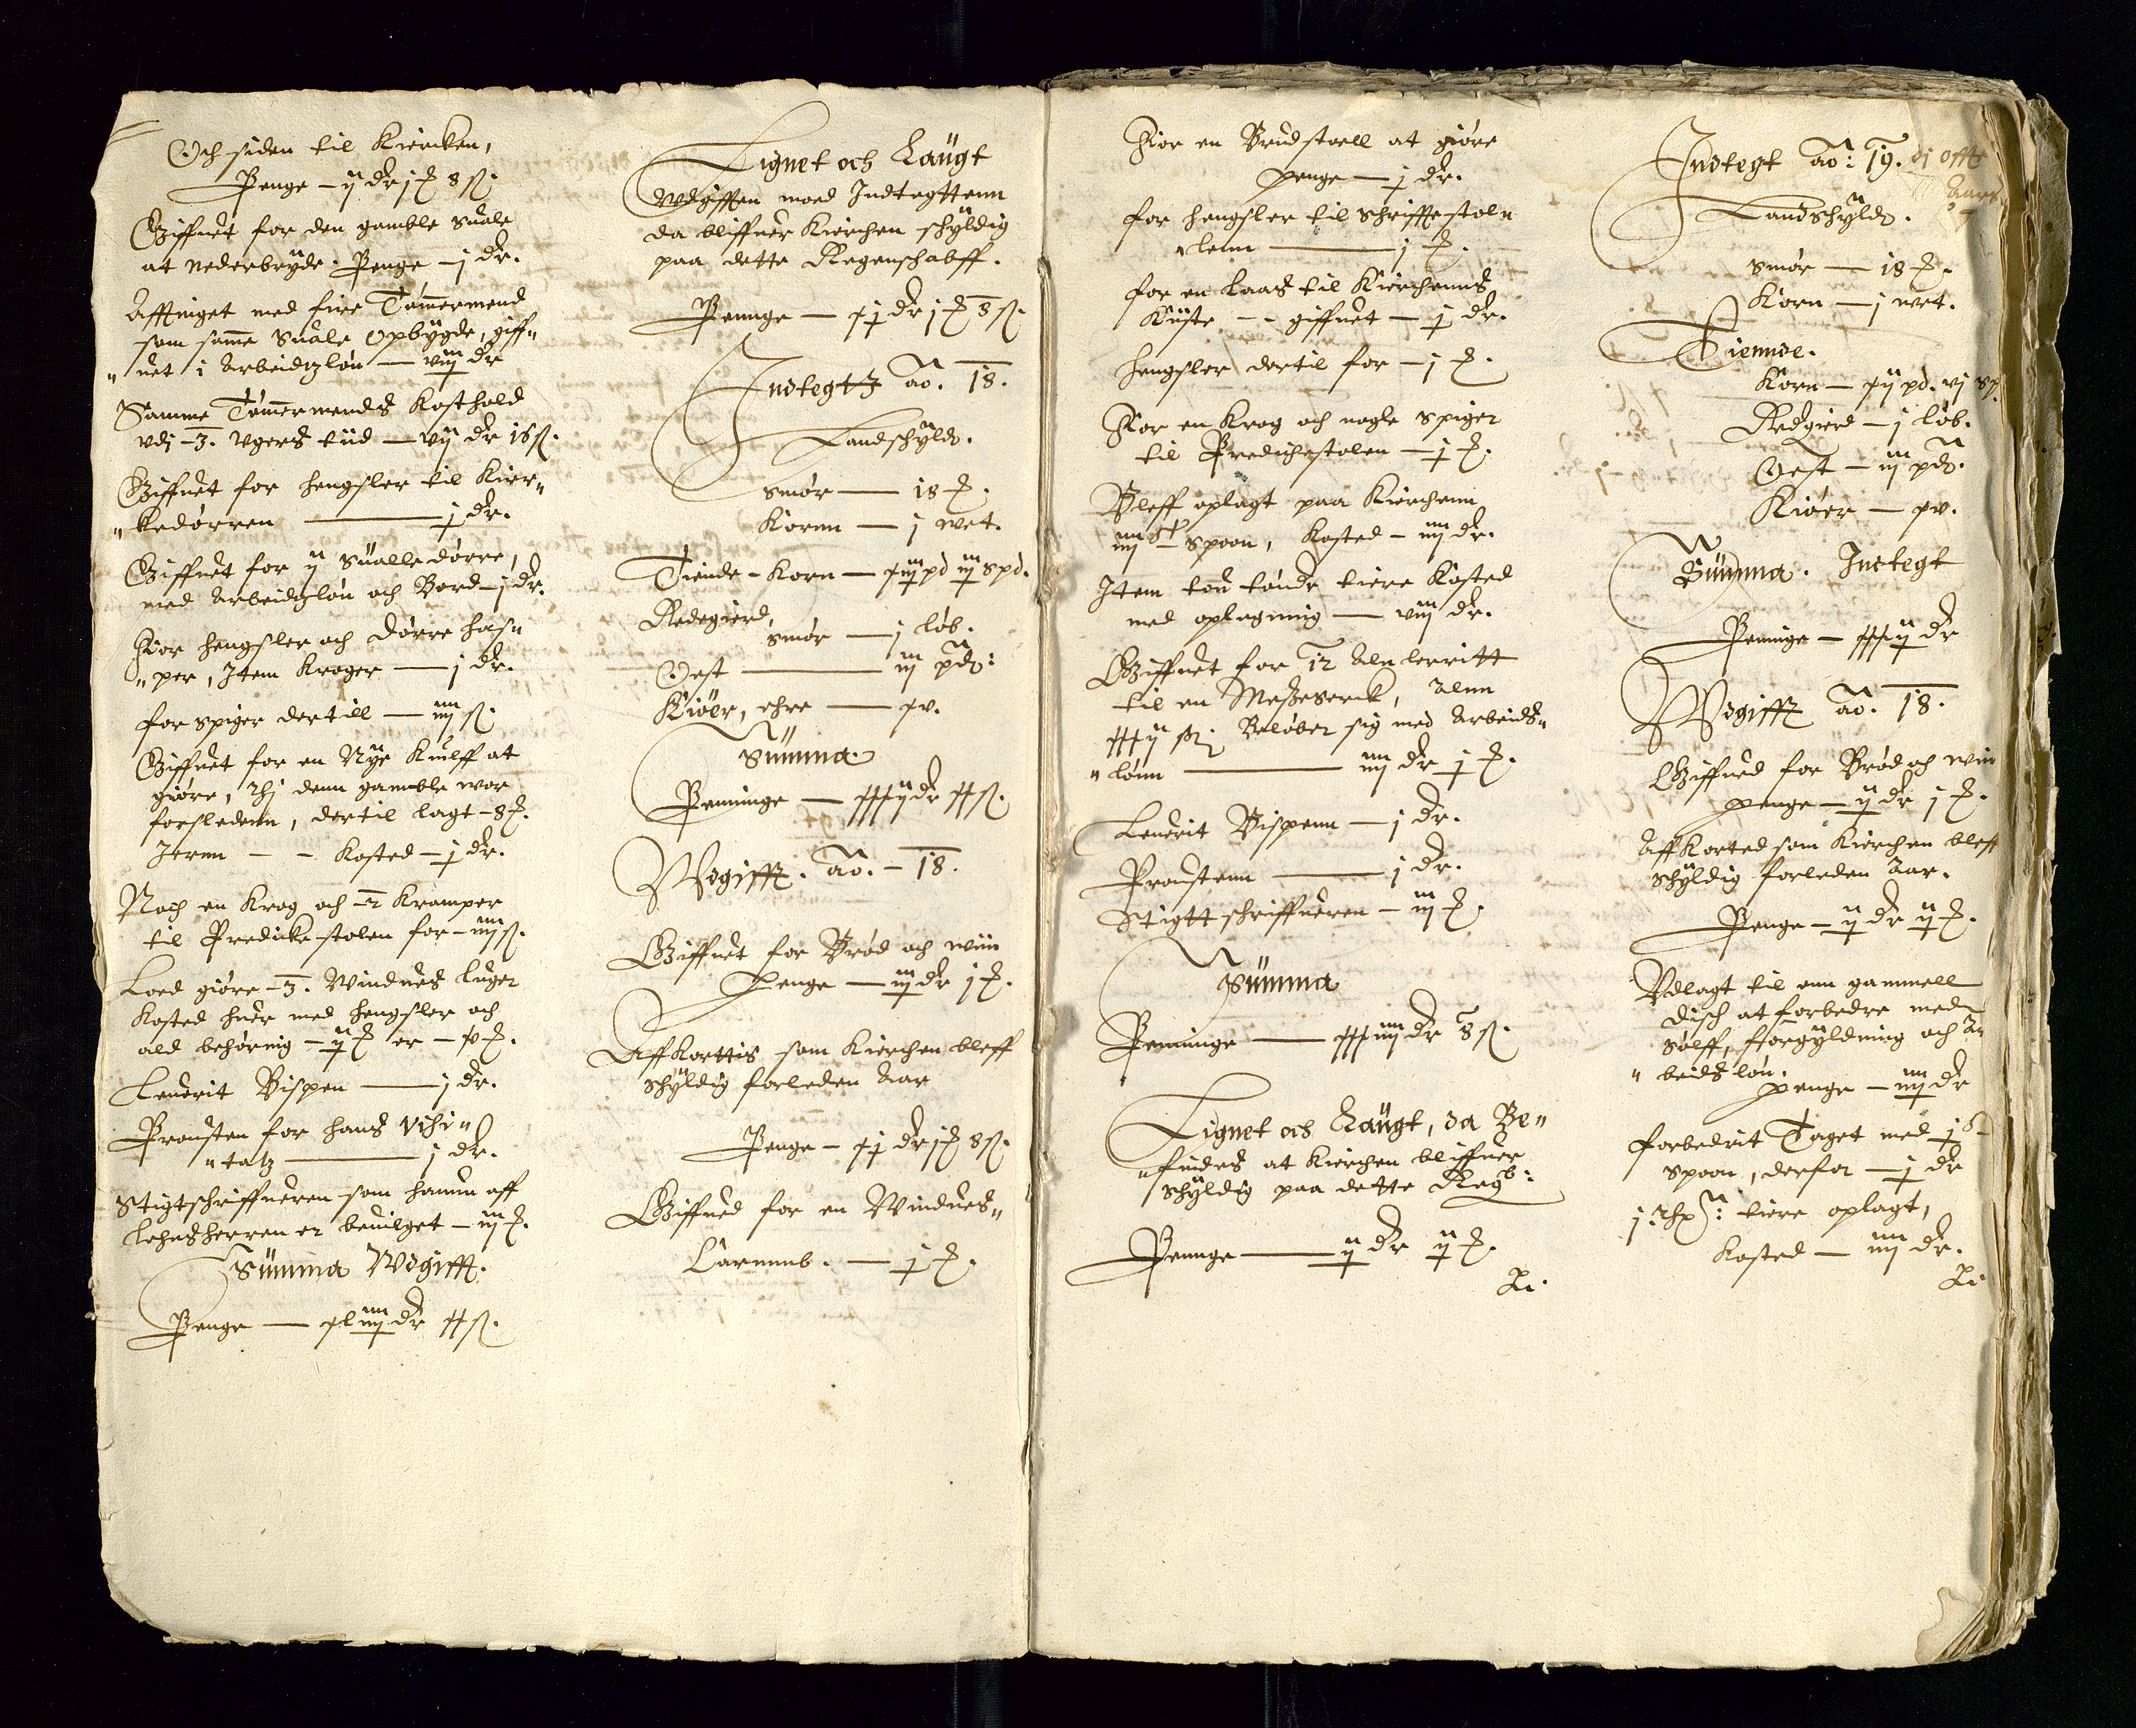 Och siden til Kierken,
Penge – ij dr j ₻ 8 ß.
Giffuet for den gamble Suale
at nederbryde. Penge – j dr.
Affinget med fire Tømmermend
som samme Suale opbygde, giff„
„uet i Arbeidtzløn – viij dr
Samme Tømmermends Kosthold
vdj – 3. vgers tiid – vij dr 16 ß.
Giffuet for hengsler til Kier„
„kedørren — j dr.
Giffuet for ij Sualledørre,
med Arbeidtzløn och Bord – j dr.
For hengsler och Dørre has„
„per, Item Kroger — j dr.
for spiger dertill — iiij ß.
Giffuet for en Nye Kulff at
giøre, thj denn gamble wor
forsledenn, dertil lagt – 8 ₻.
Jernn – – Kosted – j dr.
Noch en Krog och – 2 Kramper
til Predicke stolen for – iiij ß.
Loed giøre – 3. Windues luger
Kosted huer med hengsler och
ald behøring – ij ₻ er –
Leuerit Bispen — j dr.
Prousten for hans Visi„
„tatz — j dr.
Stigtschriffueren som hannem aff
Lehnsherren er beuilget – iij ₻.
Summa Vdgifft.
Penge —
Lignet och Laugt
Vdgifften moed Indtegttenn
da bliffuer Kierchen schyldig
paa dette Regenschabff.
Pennge — xj dr j ₻ 8 ß.
Indtegt ao. 18.
Landschyld.
Smør — 18 ₻.
Kornn — j wet.
Tiende – Korn — xiij pd iij spd.
Redegierd,
Smør — j løb.
Oest — iij pd:
Kiøer, ehre — xv.
Summa
Penninge — xxxij dr xx ß.
Vdgifft. ao. – 18.
Giffuet for Brød och wiin
Penge — iij dr j ₻.
Affkorttis som Kierchen bleff
schyldig forleden Aar
Penge – xj dr j ₻ 8 ß.
Giffued for en Windues„
Carmmb. — j ₻.
For en Brudstoell at giøre
Penge — j dr.
for hengsler til Schrifftestol„
„lenn — j ₻.
for en laas til Kierchenns
Kiste – – giffuet — j dr.
hengsler dertil for – j ₻.
For en Krog och nogle Spiger
til Predichestolen — j ₻.
Bleff oplagt paa Kierchenn
iiij spoon, Kosted – iiij dr.
Item tou tønde tiere Kosted
med oplegning — viij dr.
Giffuet for 12 Alen lerritt
til en Messeserck, Alenn
xxxij ß. Beløber sig med Arbeids„
„lønn — iiij dr j ₻.
Leuerit Bispenn — j dr.
Proustenn — j dr.
Stigtt schriffueren – iij ₻.
Summa
Penninge — xxxiiij dr 8 ß.
Lignet och Laugt, da Be„
„findes at Kierchen bliffuer
schyldig paa dette Regb:
Pennge — ij dr ij ₻.
Indtegt ao: 19.
Landschyld.
Smør — 18 ₻.
Korn — j wet.
Tiennde.
Korn – xij pd. vj sp.
Redgierd – j løb.
Oest – iij pd.
Kiøer — xv.
Summa. Indtegt
Penninge — xxxij dr
Vdgifft ao. 18.
Giffued for Brød och win
Penge – ij dr j ₻.
Affkorted som Kierchen bleff
schyldig forleden Aar.
Penge – ij dr ij ₻.
Vdlagt til enn gammell
disch at forbedre med
Sølff, Forgyldning och Ar
„beids løn.
Penge – iiij dr
forbedrit Taget med j
spoon, derfor – j dr
j. tiere oplagt,
Kosted — iiij dr.